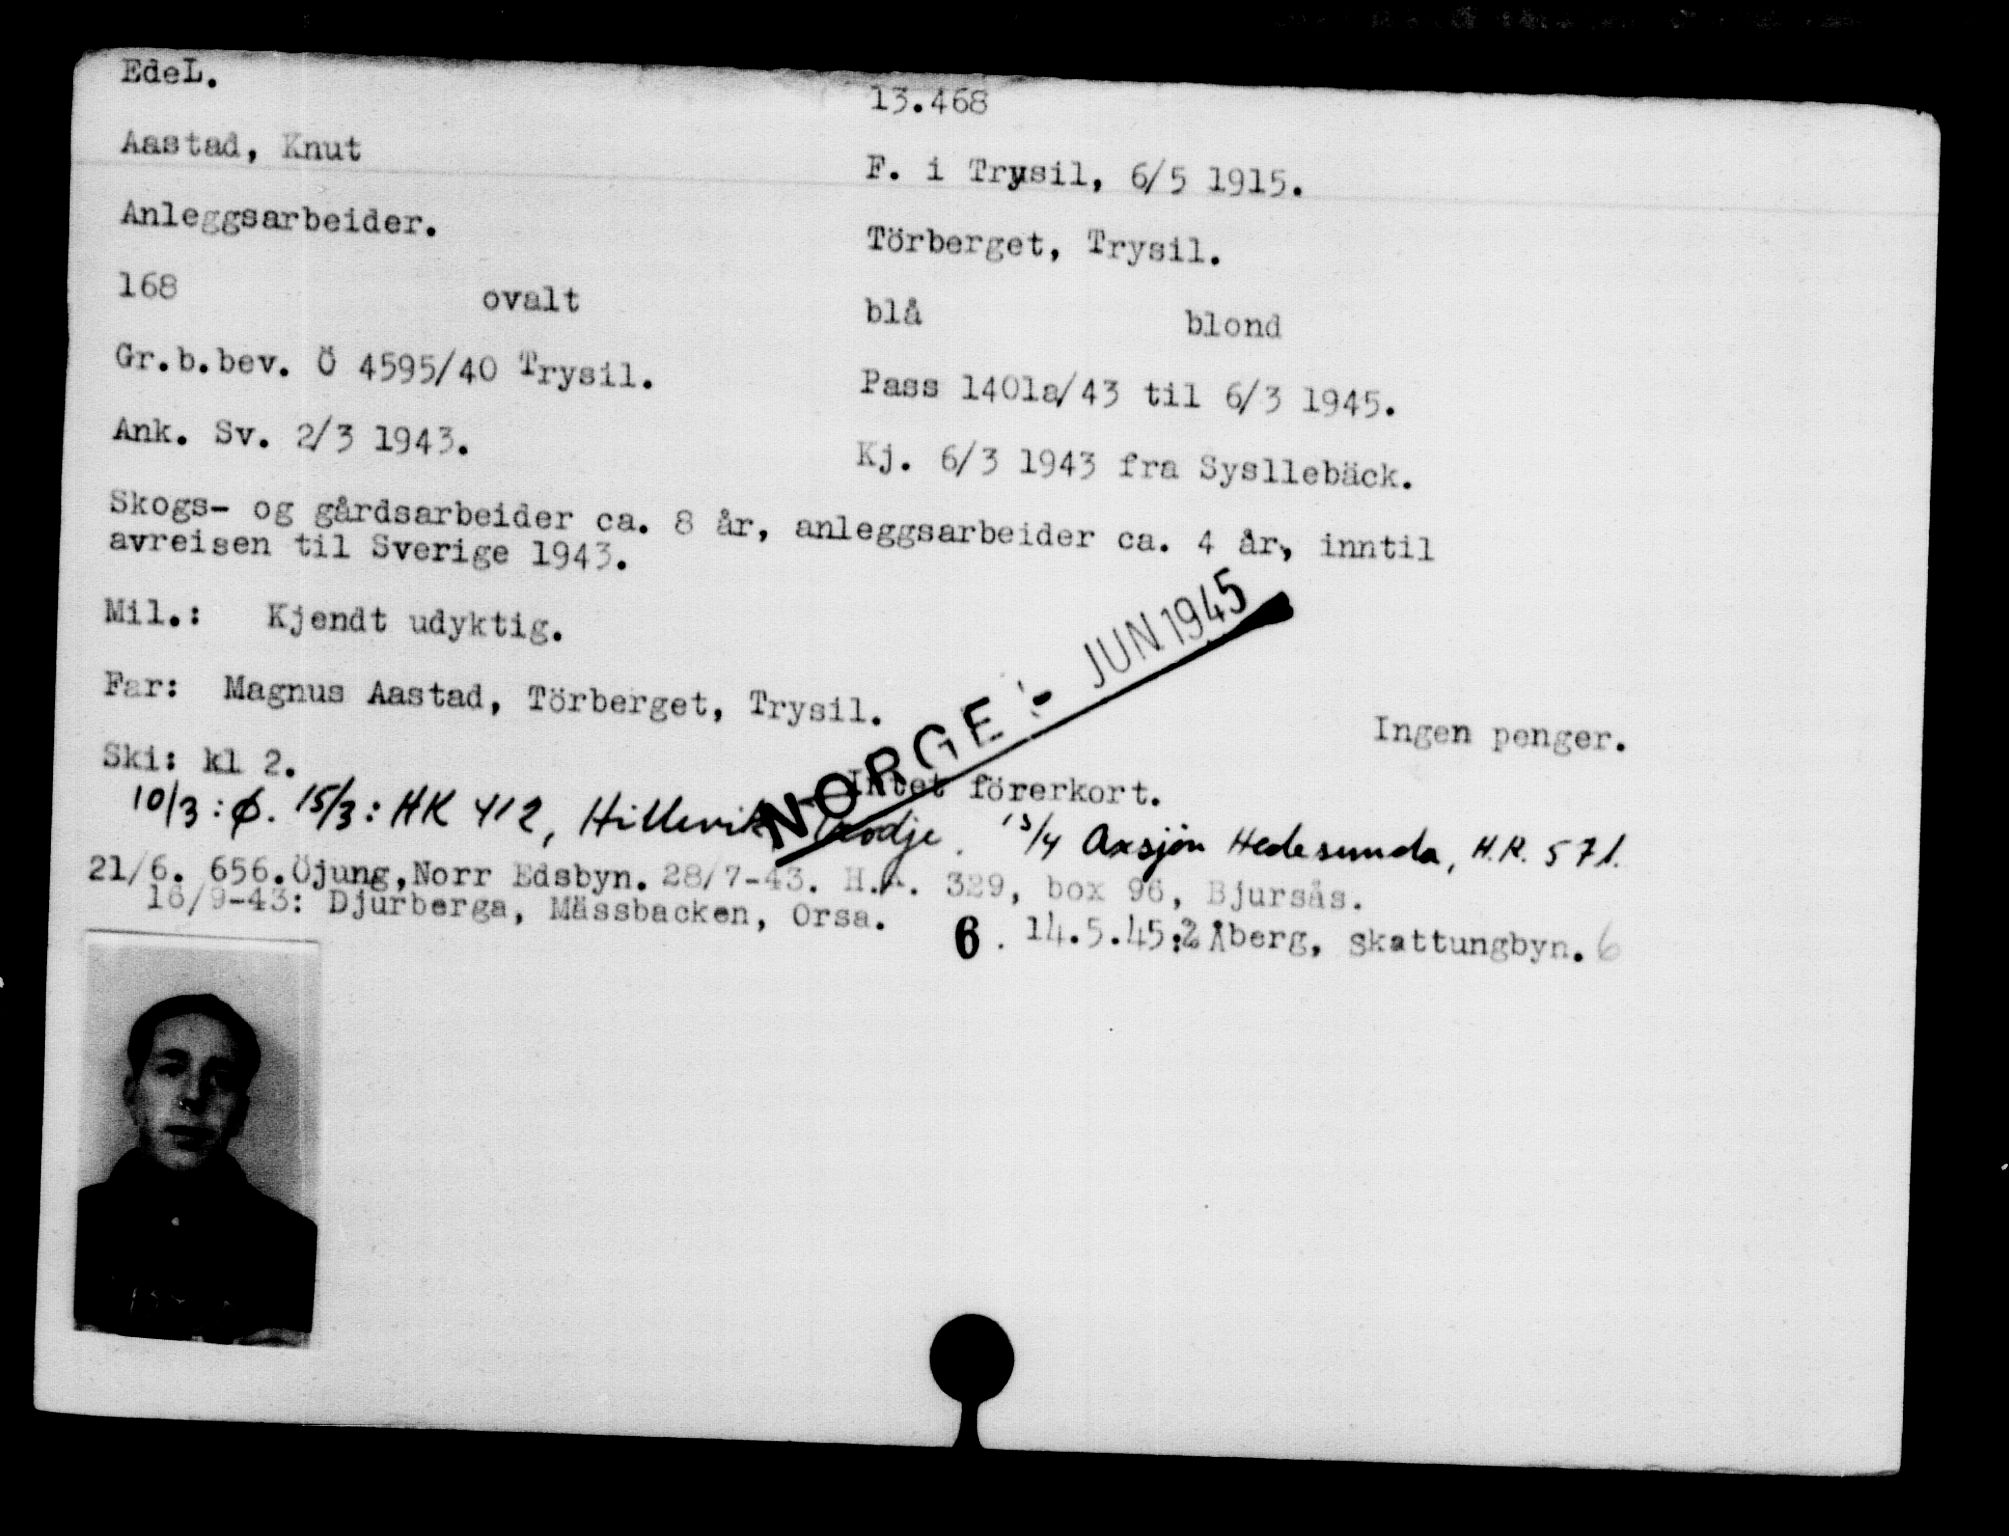 EdeL.
13.468
Aastad, Knut
F. i Trysil, 6/5 1915.
Anleggsarbeider.
Törberget, Trysil.
168 ovalt blå blond
Gr.b.bev. Ö 4595/40 Trysil.
Pass 1401a/43 til 6/3 1945.
Ank. Sv. 2/3 1943.
Kj. 6/3 1943 fra Syssllebäck.
Skogs- og gårdsarbeider ca. 8 år, anleggsarbeider ca. 4 år, inntil
avreisen til Sverige 1943.
Mil.: Kjendt udyktig.
NORGE :- JUN 1945
Far: Magnus Aastad, Törberget, Trysil.
Ingen penger.
Ski: kl 2.
Intet förerkort.
10/3: Ø. 15/3: HK 412, Hillevik, Trödje. 13/4 Axsjön Hedesunda, H.R. 571.
21/6. 656. Öjung, Norr Edsbyn. 28/7-43. H. . 329, box 96, Bjursås.
16/9-43: Djurberga, Mässbacken, Orsa.
6. 14.5.45:2 Åberg, Skattungbyn. 6